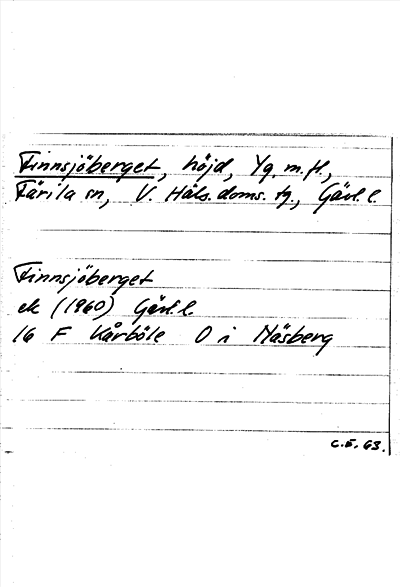 Finnsjöberget, höjd, Yg. m.fl.,
Färila sn, V. Häls. doms. tg., Gävl. l.
Finnsjöberget
ek (1960) Gävl. l.
16 F Kårböle O i Näsberg
C.E. 63.